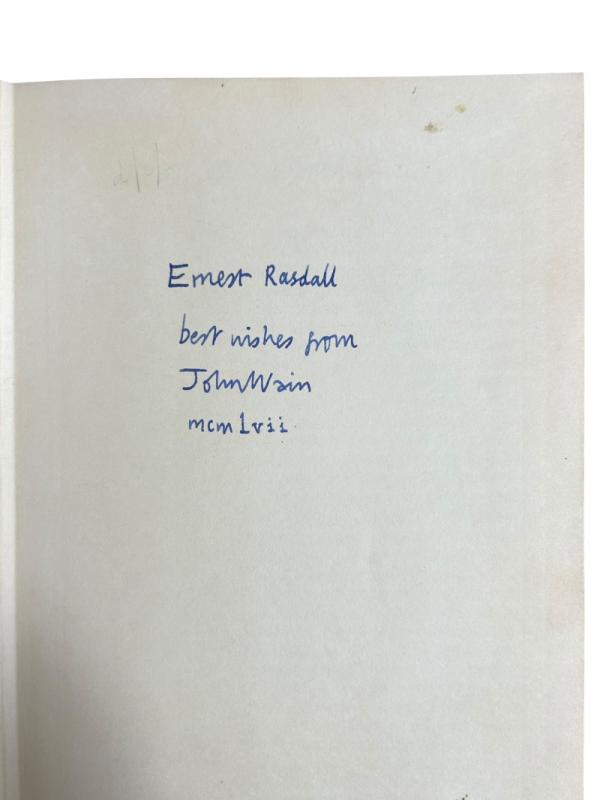 Ernest Rasdall
best wishes from
John Wain
mcmlvii